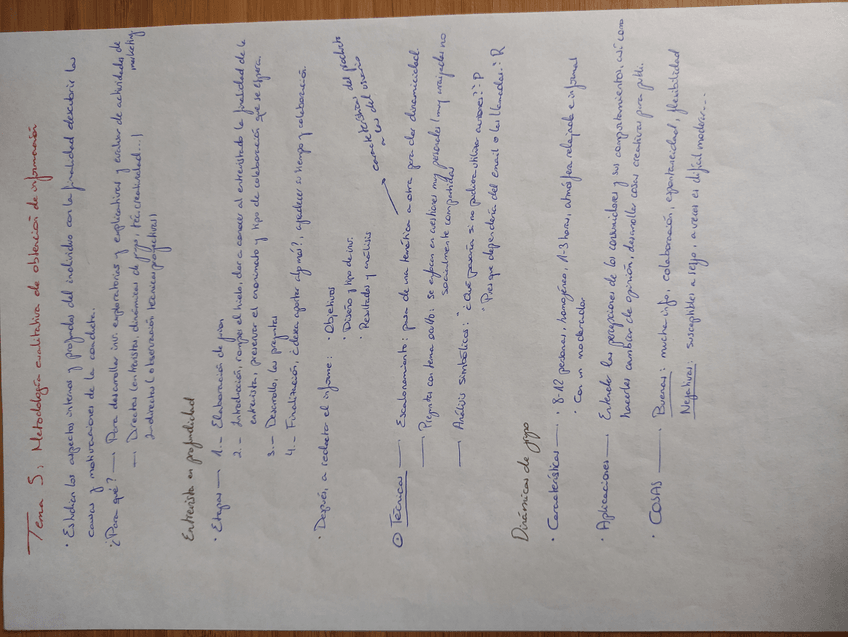 Tema 5: Metodología cualitativa de obtención de información
· Estudian los aspectos internos y profundos del individuo con la finalidad descubrir las
causas y motivaciones de la conducta.
¿Para qué? — Para desarrollar inv. exploratorias y explicativas y evaluar de actividades de
marketing
— Directas (entrevistas, dinámicas de grupo, téc. creatividad...)
Indirectas (observación, técnicas proyectivas)
Entrevista en profundidad
· Etapas — 1.- Elaboración de guion
2.- Introducción, romper el hielo, dar a conocer al entrevistado la finalidad de la
entrevista, presentar el momento y tipo de colaboración que se espera.
3.- Desarrollo, las preguntas
4.- Finalización, ¿desea aportar algo más?, agradecer su tiempo y colaboración.
· Después, a redactar el informe: · Objetivos
· Diseño y tipo de inv.
· Resultados y análisis
características del producto
a las del usuario
Técnicas — Escalonamiento: pasar de una temática a otra para dar dinamicidad.
— Preguntas con tema oculto: se enfocan en cuestiones muy personales/muy arraigadas no
socialmente compartidas
— Análisis simbólico: ¿Qué pasaría si no pudiera utilizar aviones?: P
· Pues que dependería del email o las llamadas: R
Dinámicas de grupo
· Características — · 8-12 personas, homogéneo, 1-3 horas, atmósfera relajada e informal
· Con un moderador
· Aplicaciones — Entender las percepciones de los consumidores y sus comportamientos, así como
hacerlos cambiar de opinión, desarrollar cosas creativas para publi.
· COSAS — Buenas: mucha info, colaboración, espontaneidad, flexibilidad
Negativas: susceptibles a sesgo, a veces es difícil moderar...